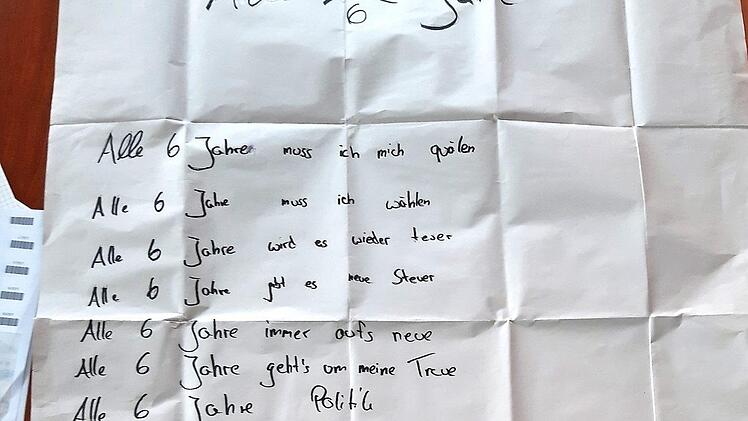 6
Alle 6 Jahre muss ich mich quälen
Alle 6 Jahre muss ich wählen
Alle 6 Jahre wird es wieder teuer
Alle 6 Jahre gibt es neue Steuer
Alle 6 Jahre immer aufs neue
Alle 6 Jahre geht's um meine Treue
Alle 6 Jahre Politik